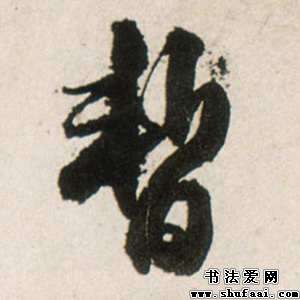 暫
书法爱网
www.shufaai.com